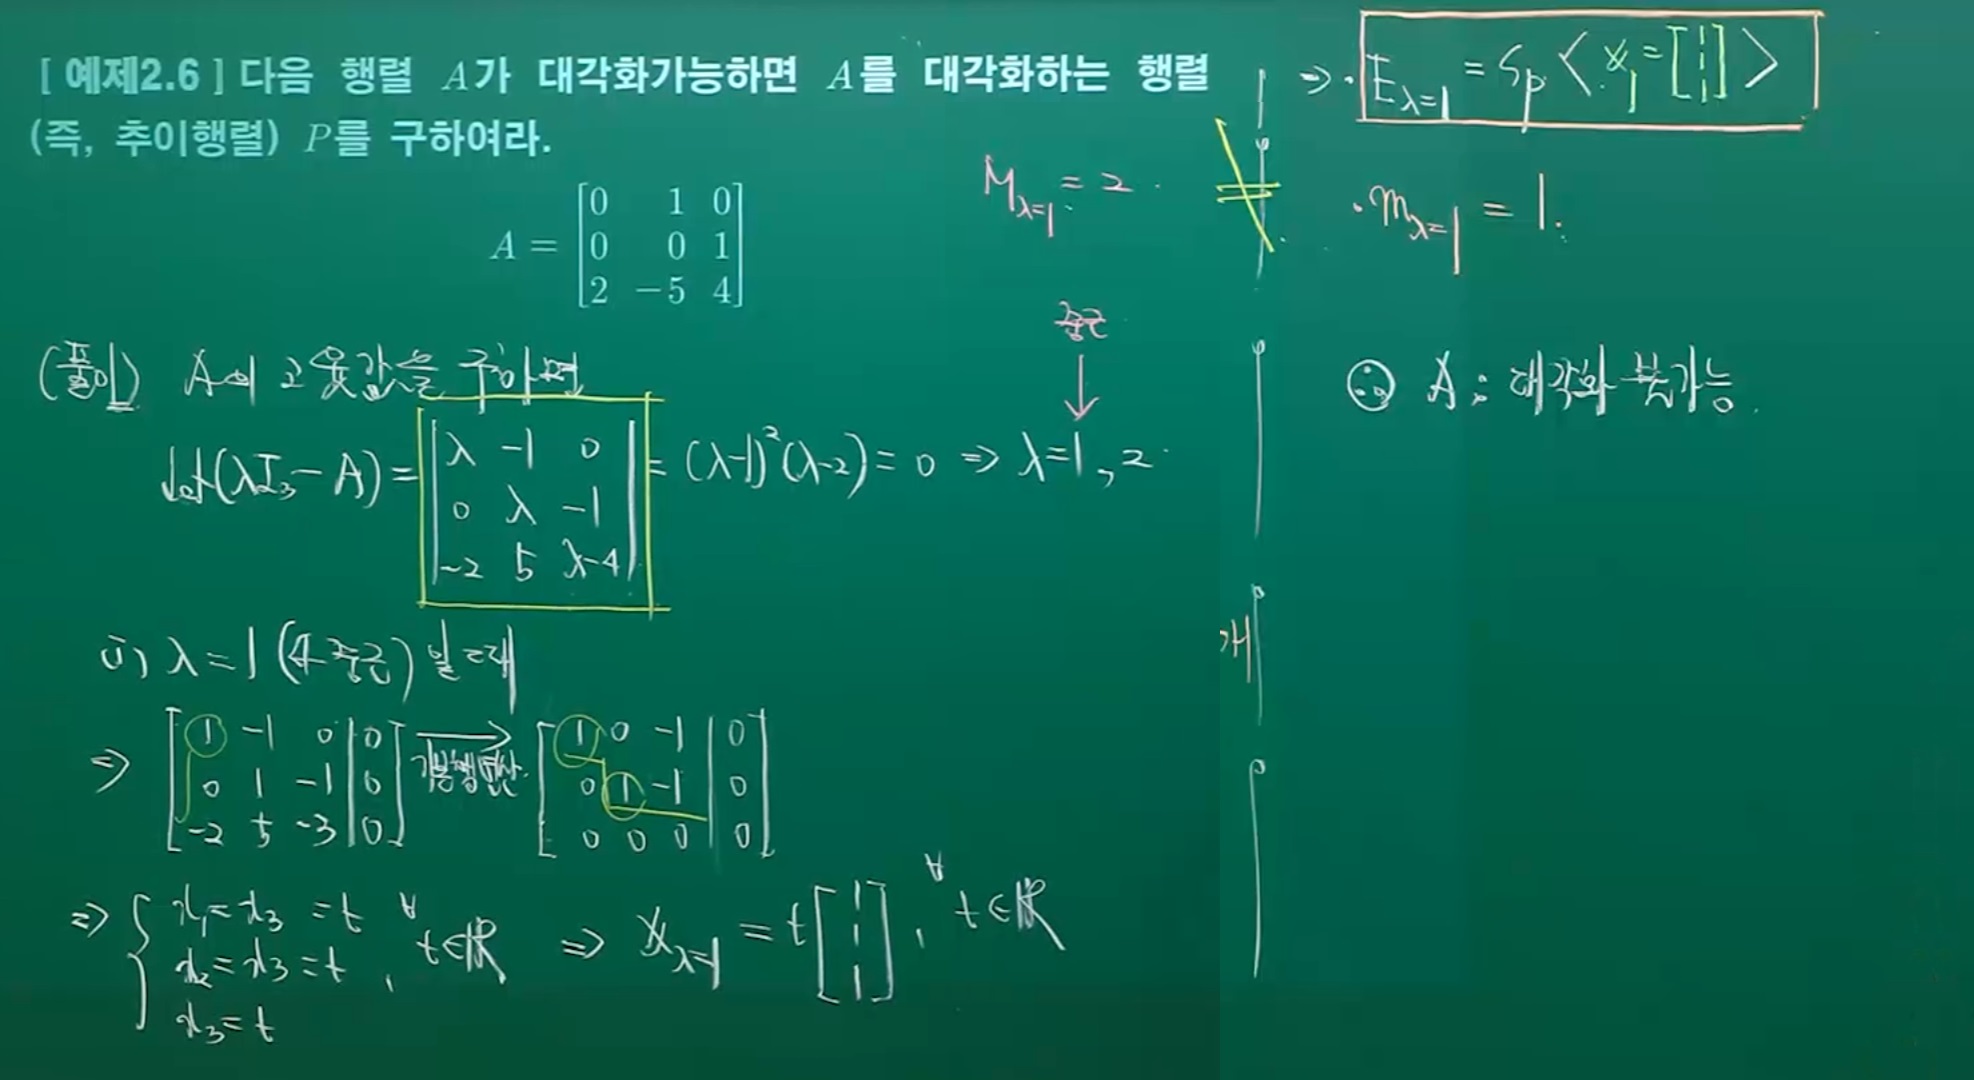 [ 예제2.6 ] 다음 행렬 A가 대각화가능하면 A를 대각화하는 행렬
(즉, 추이행렬) P를 구하여라.
A = [0 1 0]
[0 0 1]
[2 -5 4]
(풀이) A의 고유값을 구하면
det(λI₃-A) = |λ -1 0| = (λ-1)²(λ-2) = 0 ⇒ λ=1, 2.
|0 λ -1|
|-2 5 λ-4|
중근
↓
M_λ=1 = 2.
λ=1 (중근) 일 때
⇒ [1 -1 0 | 0] → [1 0 -1 | 0]
[0 1 -1 | 0] 기본행연산 [0 1 -1 | 0]
[-2 5 -3 | 0] [0 0 0 | 0]
⇒ { x₁=x₃ =t
x₂=x₃=t , ∀t∈ℝ ⇒ 𝕏_λ=1 = t[1 1 1], ∀t∈ℝ
x₃=t
⇒ · E_λ=1 = Sp < 𝕏₁=[1 1 1] >
≠
· m_λ=1 = 1.
∴ A : 대각화 불가능.
개